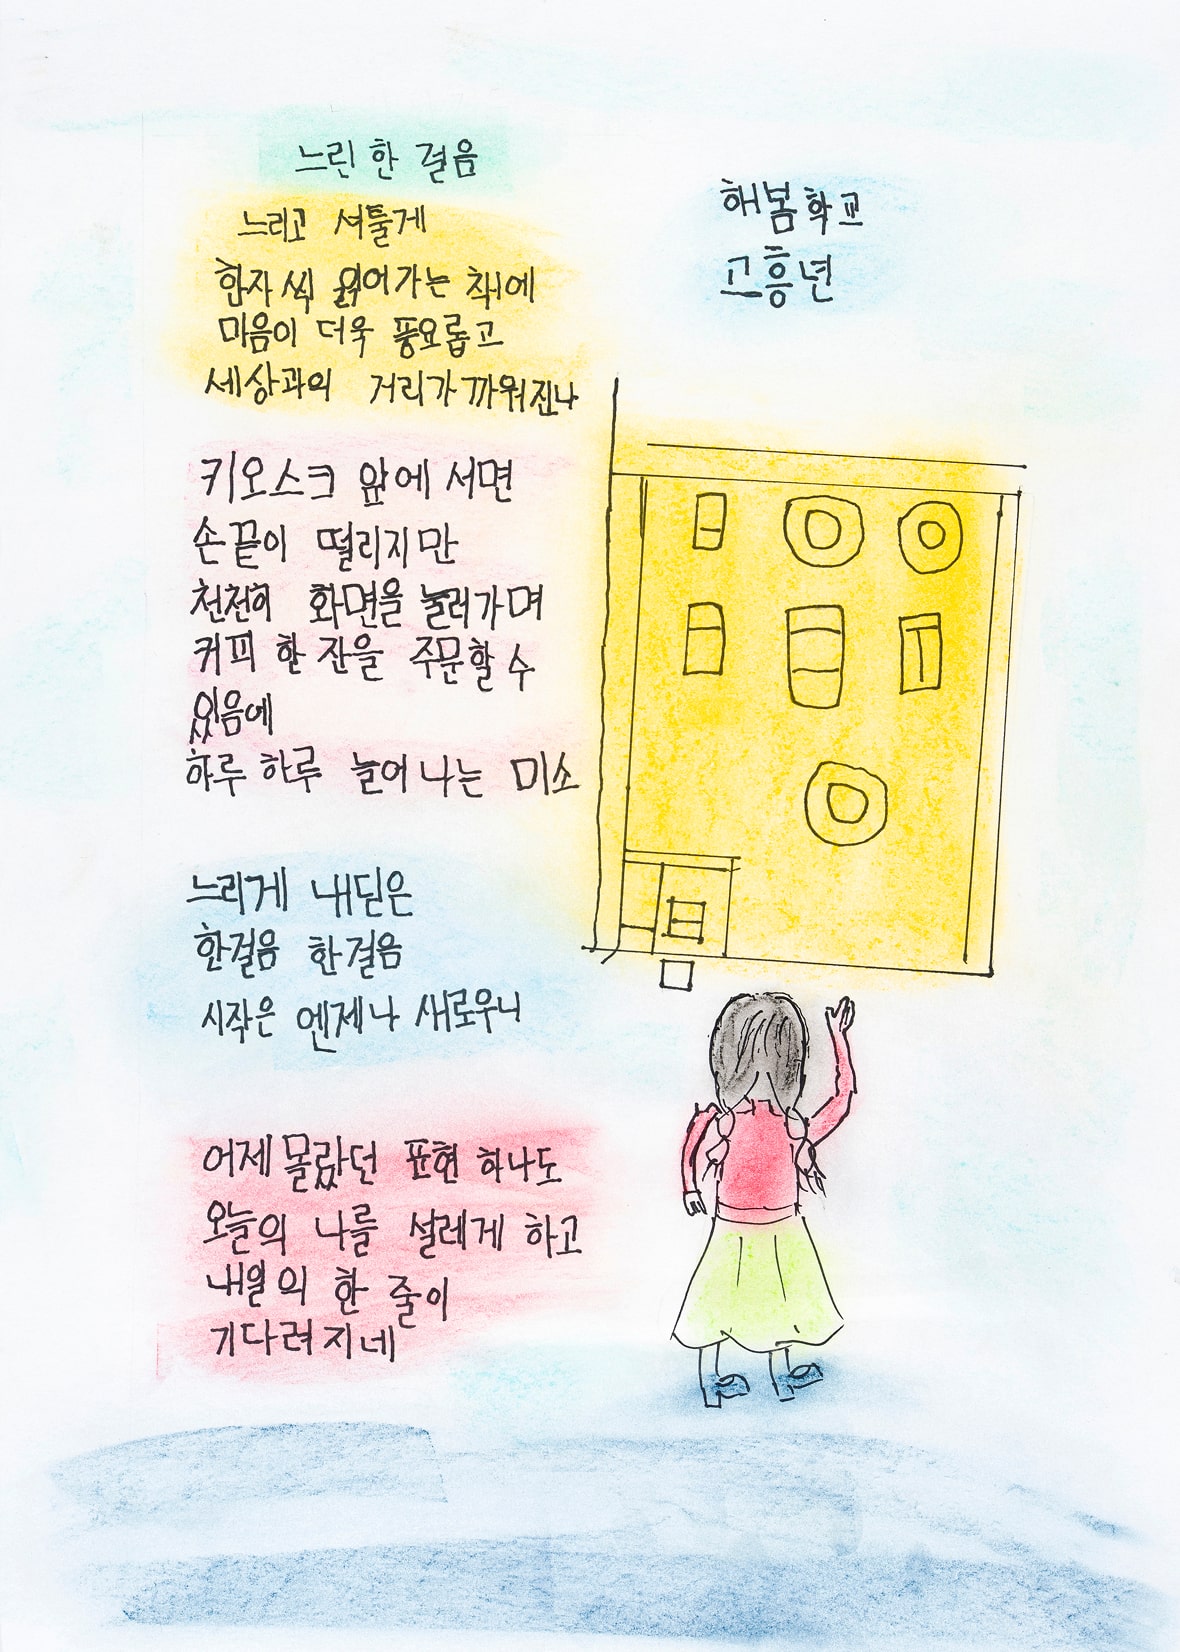 느린 한 걸음
해봄학교
고흥년
느리고 서툴게
한자씩 읽어가는 책에
마음이 더욱 풍요롭고
세상과의 거리가 까워진나
키오스크 앞에 서면
손끝이 떨리지만
천천히 화면을 눌러가며
커피 한 잔을 주문할 수
있음에
하루 하루 늘어나는 미소
느리게 내딛은
한걸음 한걸음
시작은 엔제나 새로우니
어제 몰랐던 표현 하나도
오늘의 나를 설레게 하고
내일의 한 줄이
기다려지네